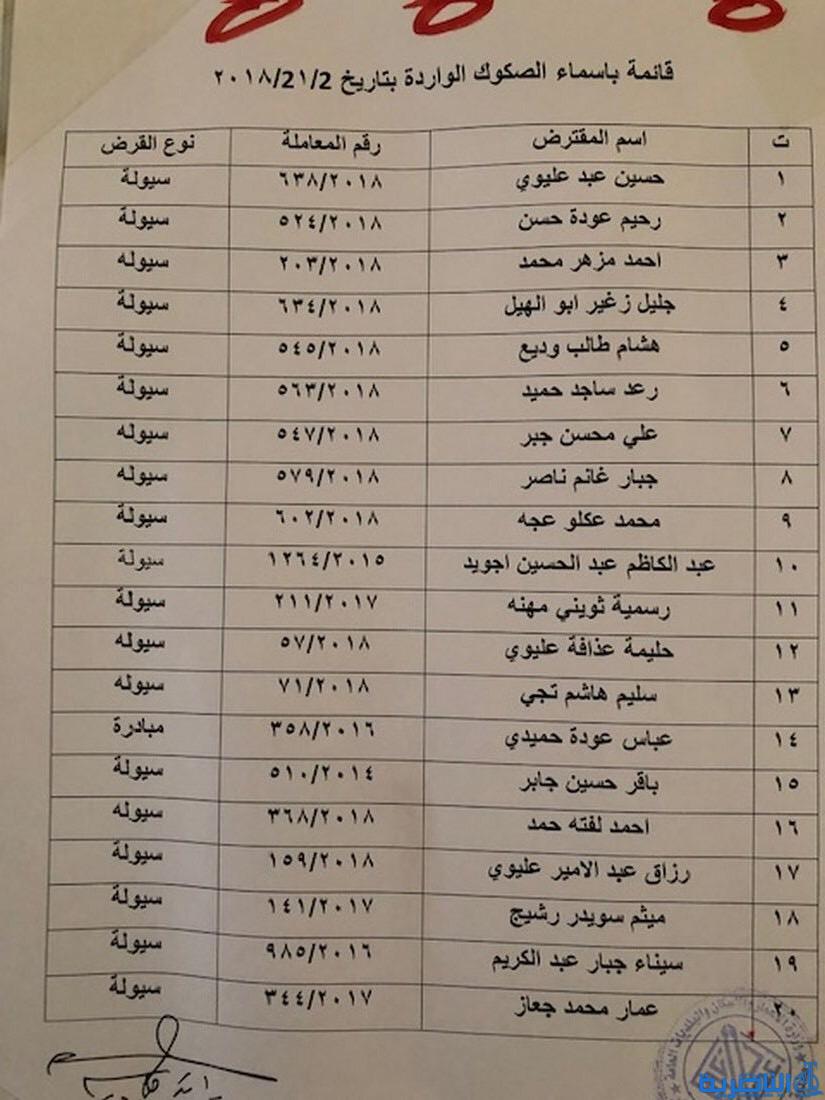 قائمة باسماء الصكوك الواردة بتاريخ 2/٢١/٢٠١٨
ت اسم المقترض رقم المعاملة نوع القرض
١ حسين عبد عليوي ٦٣٨/٢٠١٨ سيولة
٢ رحيم عودة حسن ٥٢٤/٢٠١٨ سيولة
٣ احمد مزهر محمد ٢٠٣/٢٠١٨ سيوله
٤ جليل زغير ابو الهيل ٦٣٤/٢٠١٨ سيولة
٥ هشام طالب وديع ٥٤٥/٢٠١٨ سيولة
٦ رعد ساجد حميد ٥٦٣/٢٠١٨ سيولة
٧ علي محسن جبر ٥٤٧/٢٠١٨ سيوله
٨ جبار غانم ناصر ٥٧٩/٢٠١٨ سيوله
٩ محمد عكلو عجه ٦٠٢/٢٠١٨ سيولة
١٠ عبد الكاظم عبد الحسين اجويد ١٢٦٤/٢٠١٥ سيولة
١١ رسمية ثويني مهنه ٢١١/٢٠١٧ سيولة
١٢ حليمة عذافة عليوي ٥٧/٢٠١٨ سيوله
١٣ سليم هاشم تجي ٧١/٢٠١٨ سيوله
١٤ عباس عودة حميدي ٣٥٨/٢٠١٦ مبادرة
١٥ باقر حسين جابر ٥١٠/٢٠١٤ سيولة
١٦ احمد لفته حمد ٣٦٨/٢٠١٨ سيوله
١٧ رزاق عبد الامير عليوي ١٥٩/٢٠١٨ سيولة
١٨ ميثم سويدر رشيج ١٤١/٢٠١٧ سيولة
١٩ سيناء جبار عبد الكريم ٩٨٥/٢٠١٦ سيولة
٢٠ عمار محمد جعاز ٣٤٤/٢٠١٧ سيولة
الناصرية